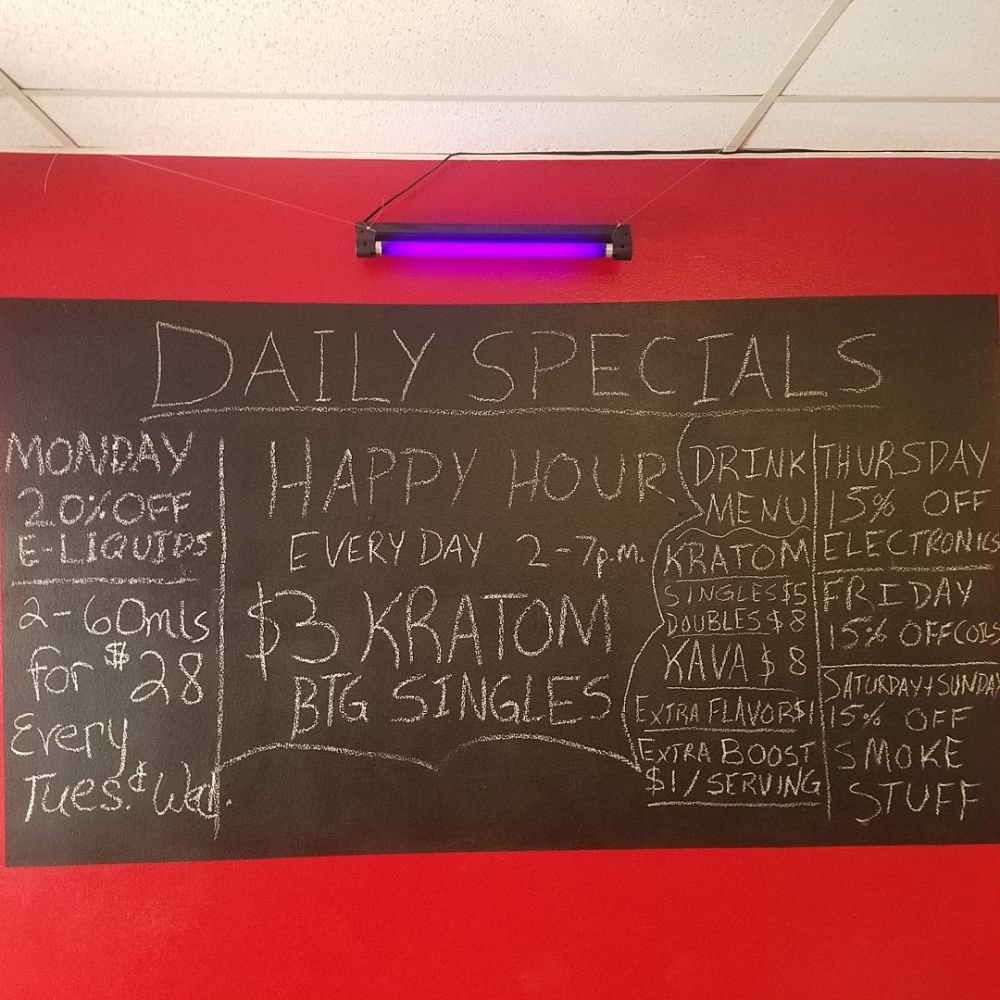 DAILY SPECIALS
MONDAY
20% OFF
E-LIQUIDS
2-60mls
for $28
Every
Tues. & Wed.
HAPPY HOUR
EVERY DAY 2-7p.m.
$3 KRATOM
BTG SINGLES
DRINK
MENU
KRATOM
SINGLES $5
DOUBLES $8
KAVA $8
EXTRA FLAVOR $1
EXTRA BOOST
$1/SERVING
THURSDAY
15% OFF
ELECTRONICS
FRIDAY
15% OFF COILS
SATURDAY + SUNDAY
15% OFF
SMOKE
STUFF